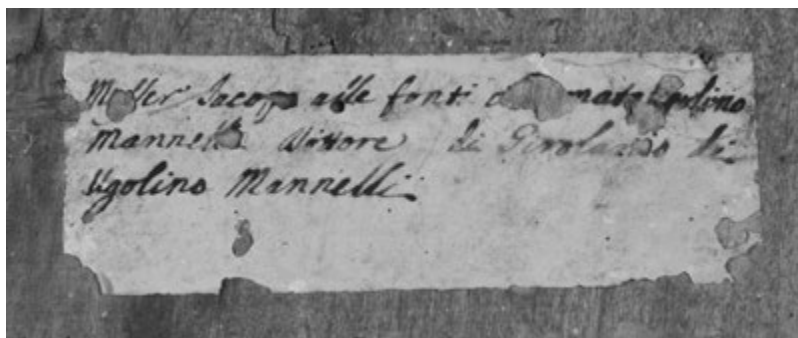 Messer Jacopo alle fonti Ugolino
Mannelli Dottore di Girolamo di
Ugolino Mannelli